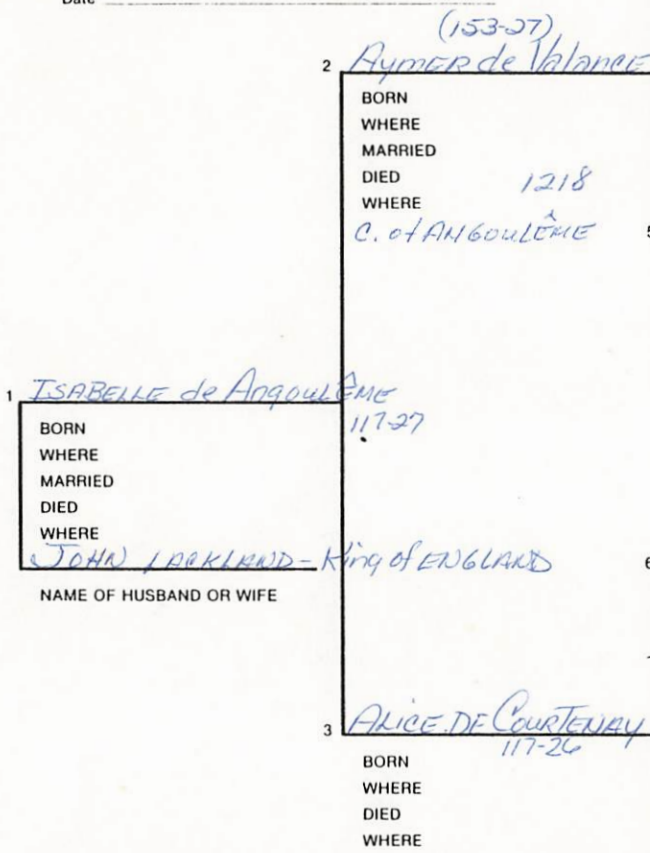 Date
(153-27)
2 Aymer de Valance
BORN
WHERE
MARRIED
DIED 1218
WHERE
C. of ANGOULÊME
5
1 ISABELLE de Angoulême
117-27
BORN
WHERE
MARRIED
DIED
WHERE
JOHN LACKLAND - King of ENGLAND
NAME OF HUSBAND OR WIFE
6
3 ALICE DE COURTENAY
117-26
BORN
WHERE
DIED
WHERE